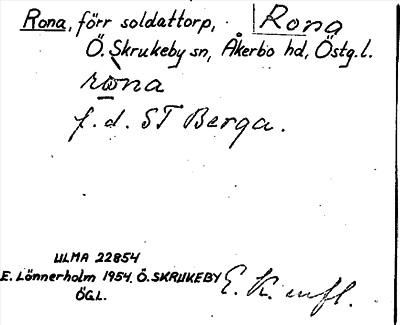 Rona, förr soldattorp, Rona
Ö. Skrukeby sn, Åkerbo hd, Östg.l.
ròna
f. d. ST Berga.
ULMA 22854
E. Lönnerholm 1954. Ö. SKRUKEBY
ÖGL.
E. K. uppl.